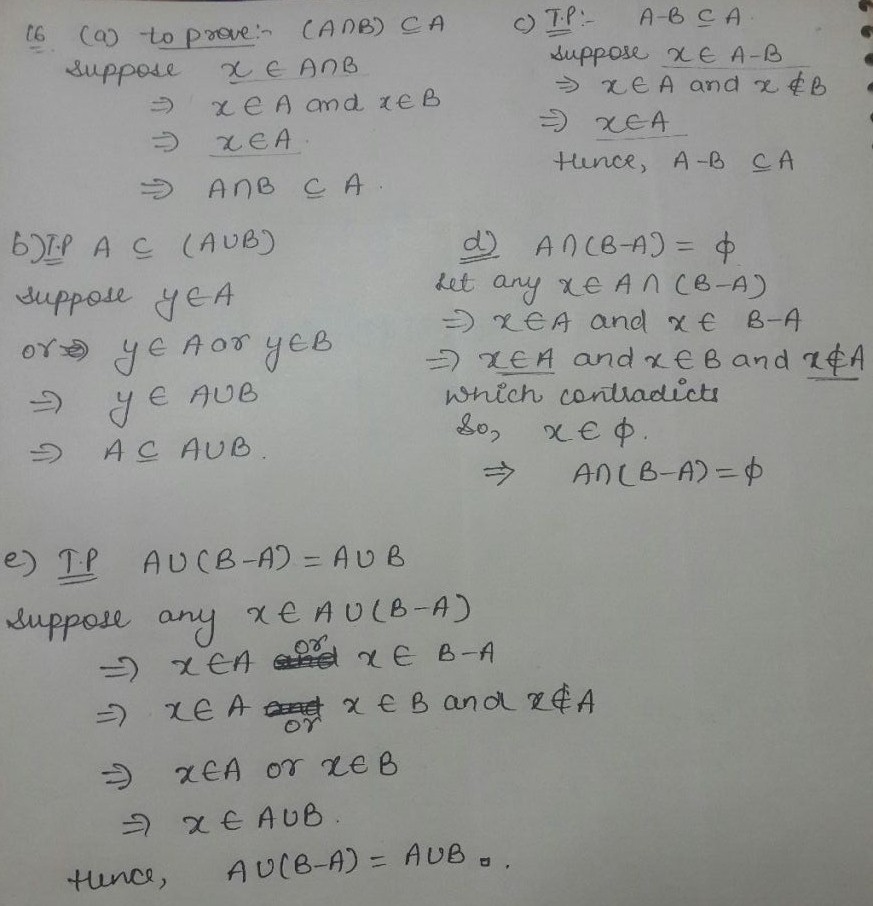 16 (a) to prove:- (A∩B) ⊆ A
suppose x ∈ A∩B
⇒ x ∈ A and x ∈ B
⇒ x ∈ A
⇒ A∩B ⊆ A.
c) T.P:- A-B ⊆ A.
suppose x ∈ A-B
⇒ x ∈ A and x ∉ B
⇒ x ∈ A
Hence, A-B ⊆ A
b) T.P A ⊆ (A∪B)
suppose y ∈ A
or ⇒ y ∈ A or y ∈ B
⇒ y ∈ A∪B
⇒ A ⊆ A∪B.
d) A∩(B-A) = ϕ
Let any x ∈ A∩(B-A)
⇒ x ∈ A and x ∈ B-A
⇒ x ∈ A and x ∈ B and x ∉ A
which contradicts
So, x ∈ ϕ.
⇒ A∩(B-A) = ϕ
e) T.P A∪(B-A) = A∪B
suppose any x ∈ A∪(B-A)
⇒ x ∈ A or x ∈ B-A
⇒ x ∈ A or x ∈ B and x ∉ A
⇒ x ∈ A or x ∈ B
⇒ x ∈ A∪B.
Hence, A∪(B-A) = A∪B .